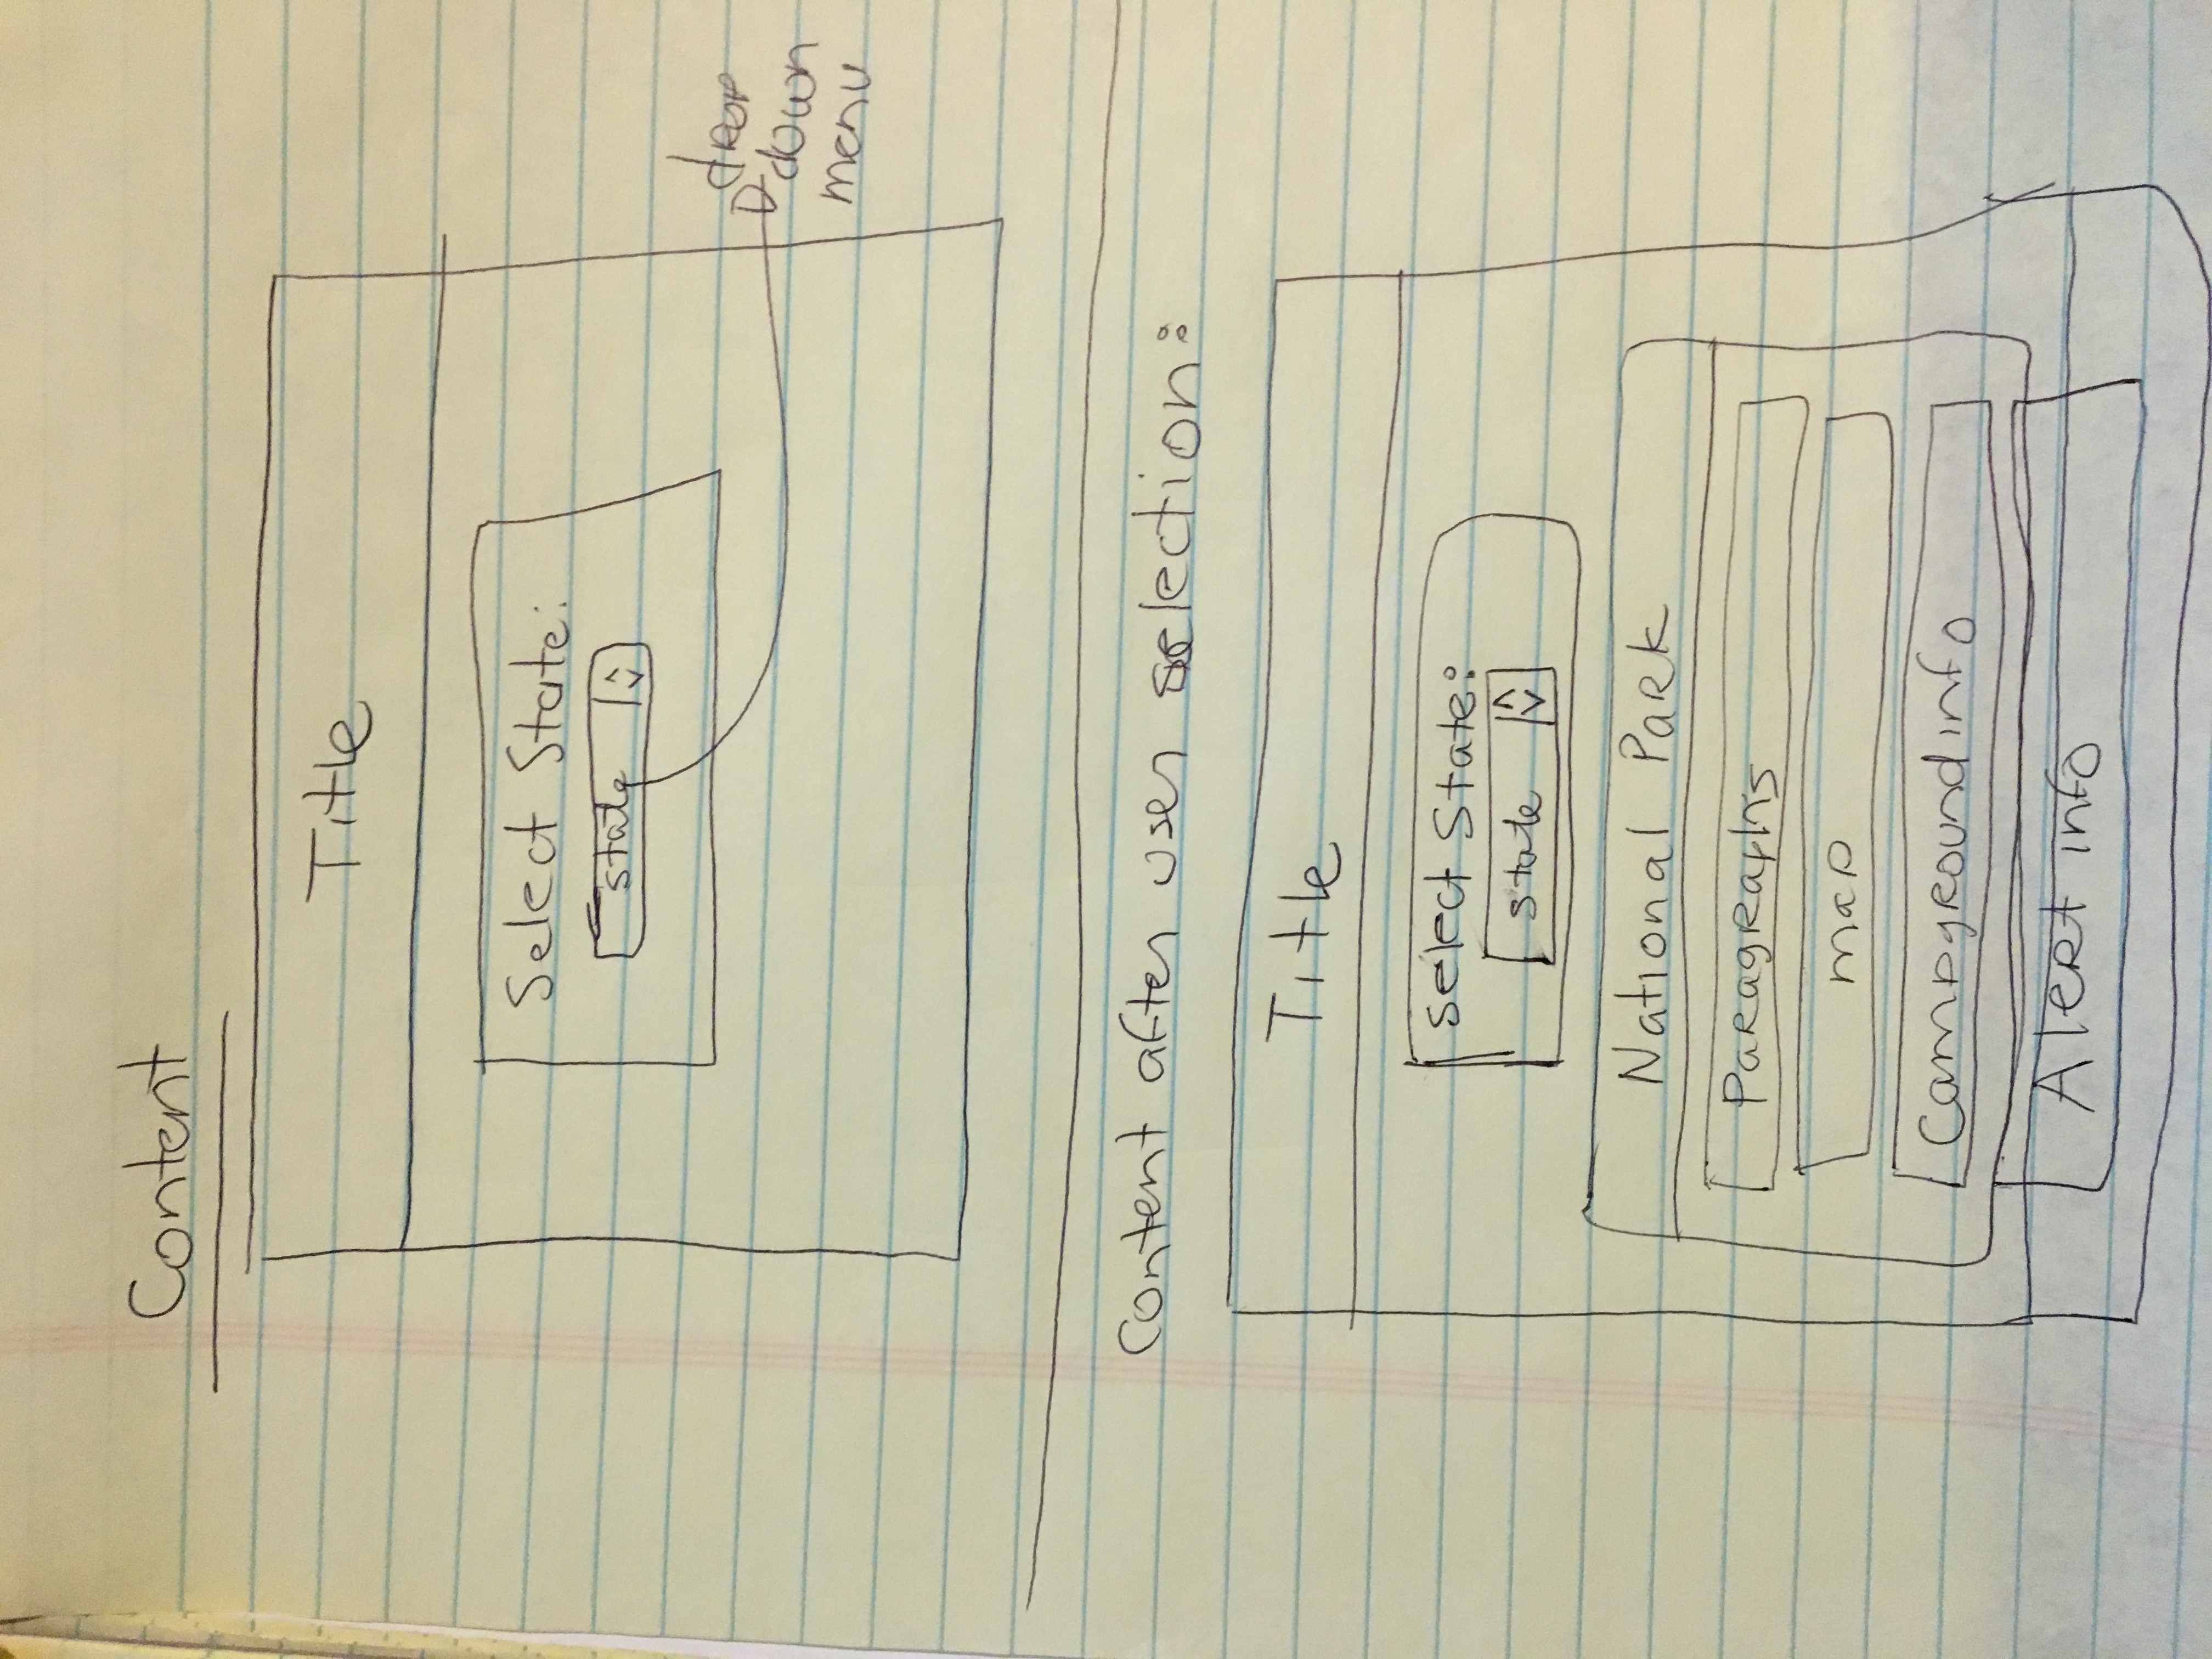 Content
Title
Select State:
state
drop
down
menu
Content after user selection:
Title
Select State:
state
National Park
Paragraphs
map
Campground info
Alert info